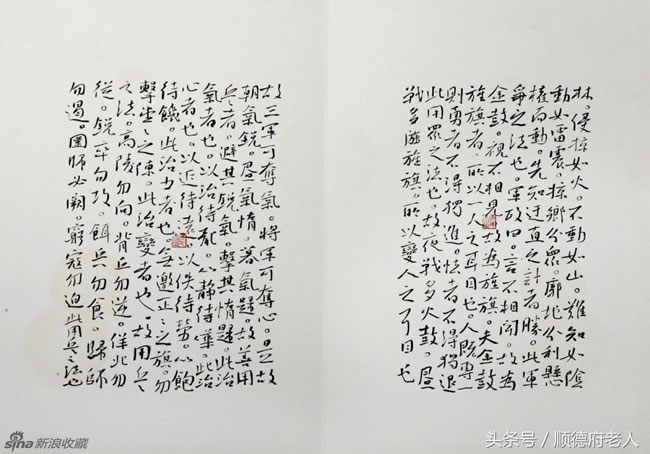 林。侵掠如火。不動如山。難知如陰
動如雷震。掠鄉分眾。廓地分利懸
權而動。先知迂直之計者勝。此軍
爭之法也。軍政曰。言不相聞。故為
金鼓。視不相見。故為旌旗。夫金鼓
旌旗者。所以一人之耳目也。人既專一
則勇者不得獨進。怯者不得獨退
此用眾之法也。故夜戰多火鼓。晝
戰多旌旗。所以變人之耳目也
故三軍可奪氣。將軍可奪心。是故
朝氣銳。晝氣惰。暮氣歸。故善用
兵者。避其銳氣。擊其惰歸。此治
氣者也。以治待亂。以靜待嘩。此治
心者也。以近待遠。以佚待勞。以飽
待饑。此治力者也。無邀正々之旗。勿
擊堂々之陳。此治變者也。故用兵
之法。高陵勿向。背丘勿逆。佯北勿
從。銳卒勿攻。餌兵勿食。歸師
勿遏。圍師必闕。窮寇勿迫此用兵之法也
sina新浪收藏
头条号／顺德府老人